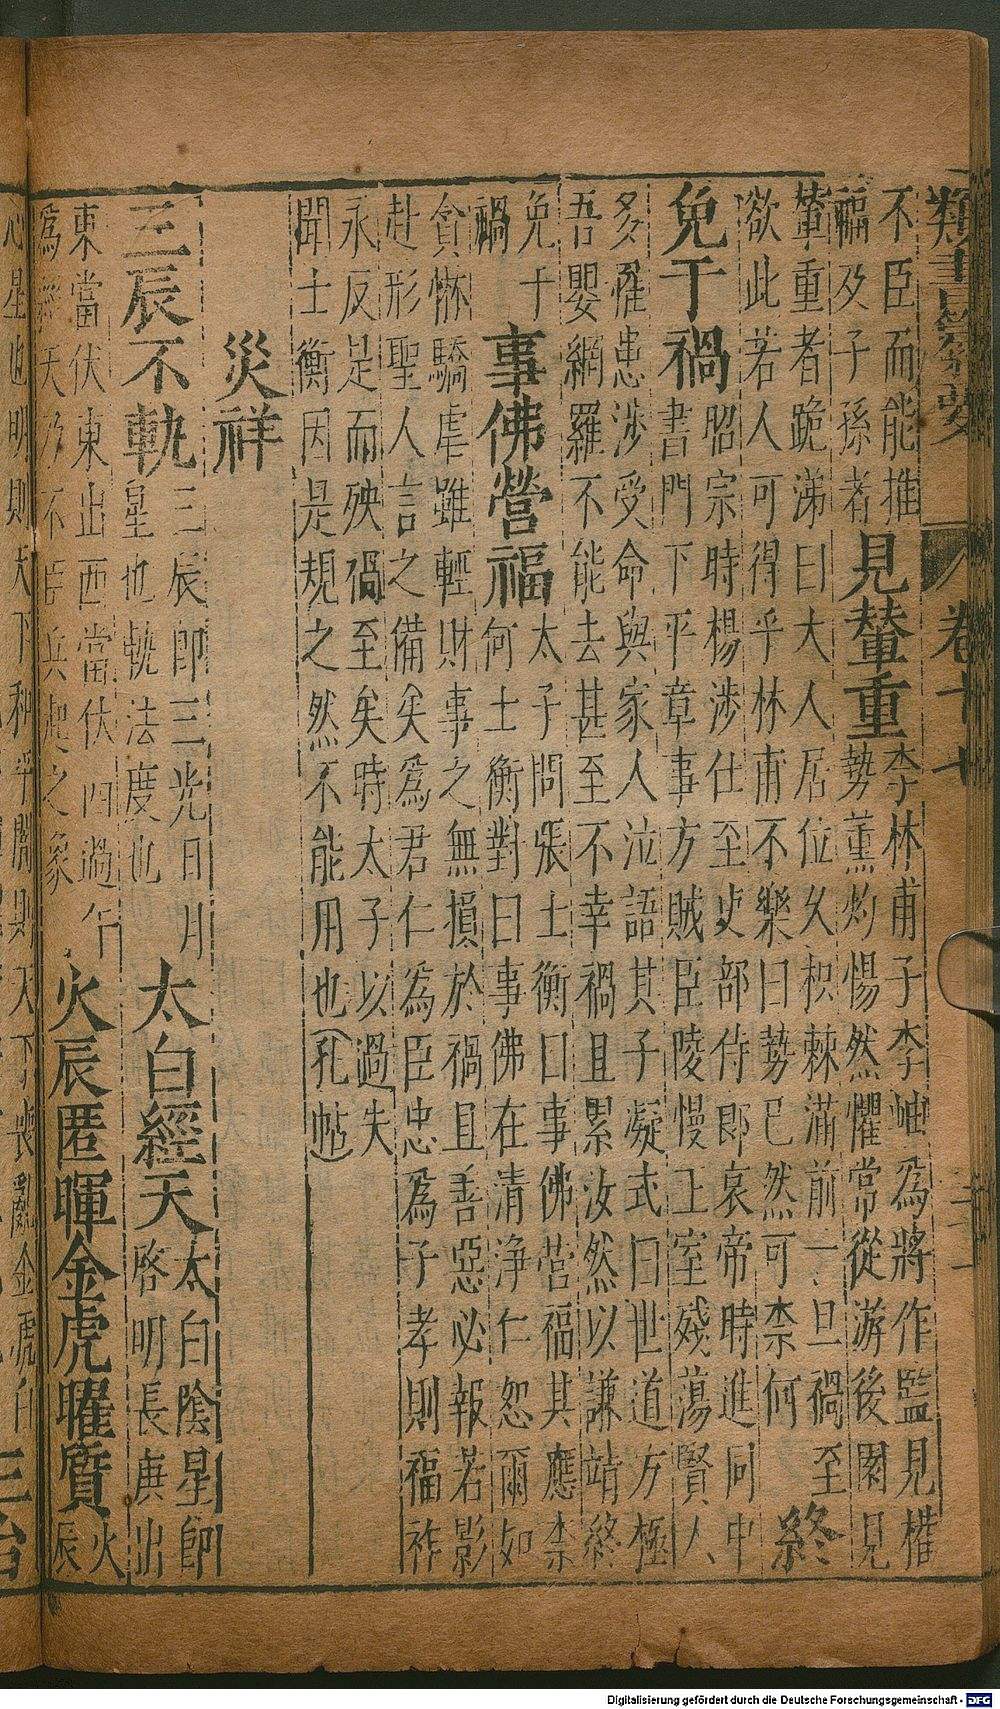 類書纂要 卷十七
不臣而能推
福及子孫者
見輦重
李林甫子李岫為將作監見權
勢薰灼惕然懼常從游後園見
輦重者跪涕曰大人居位久枳棘滿前一旦禍至
欲此若人可得乎林甫不樂曰勢已然可柰何
終
免于禍
昭宗時楊涉仕至史部侍郎哀帝時進同中
書門下平章事方賊臣陵慢上室殘蕩賢人
多罹患涉受命與家人泣語其子凝式曰世道方極
吾嬰網羅不能去甚至不幸禍且累汝然以謙靖終
免于
禍
事佛營福
太子問張士衡曰事佛營福其應柰
何士衡對曰事佛在清浄仁恕爾如
貪惏驕虐雖輕財事之無損於禍且善惡必報若影
赴形聖人言之備矣為君仁為臣忠為子孝則福祚
永反是而殃禍至矣時太子以過失
聞士衡因是規之然不能用也(孔帖)
災祥
三辰不軌
三辰即三光日月
星也軌法度也
太白經天
太白陰星即
啓明長庚出
東當伏東出西當伏西過午
為經天乃不臣兵起之象
火辰匿暉金虎曜質
火
辰
心星也明則天下和平闇則天下喪亂金虎
Digitalisierung gefördert durch die Deutsche Forschungsgemeinschaft - DFG